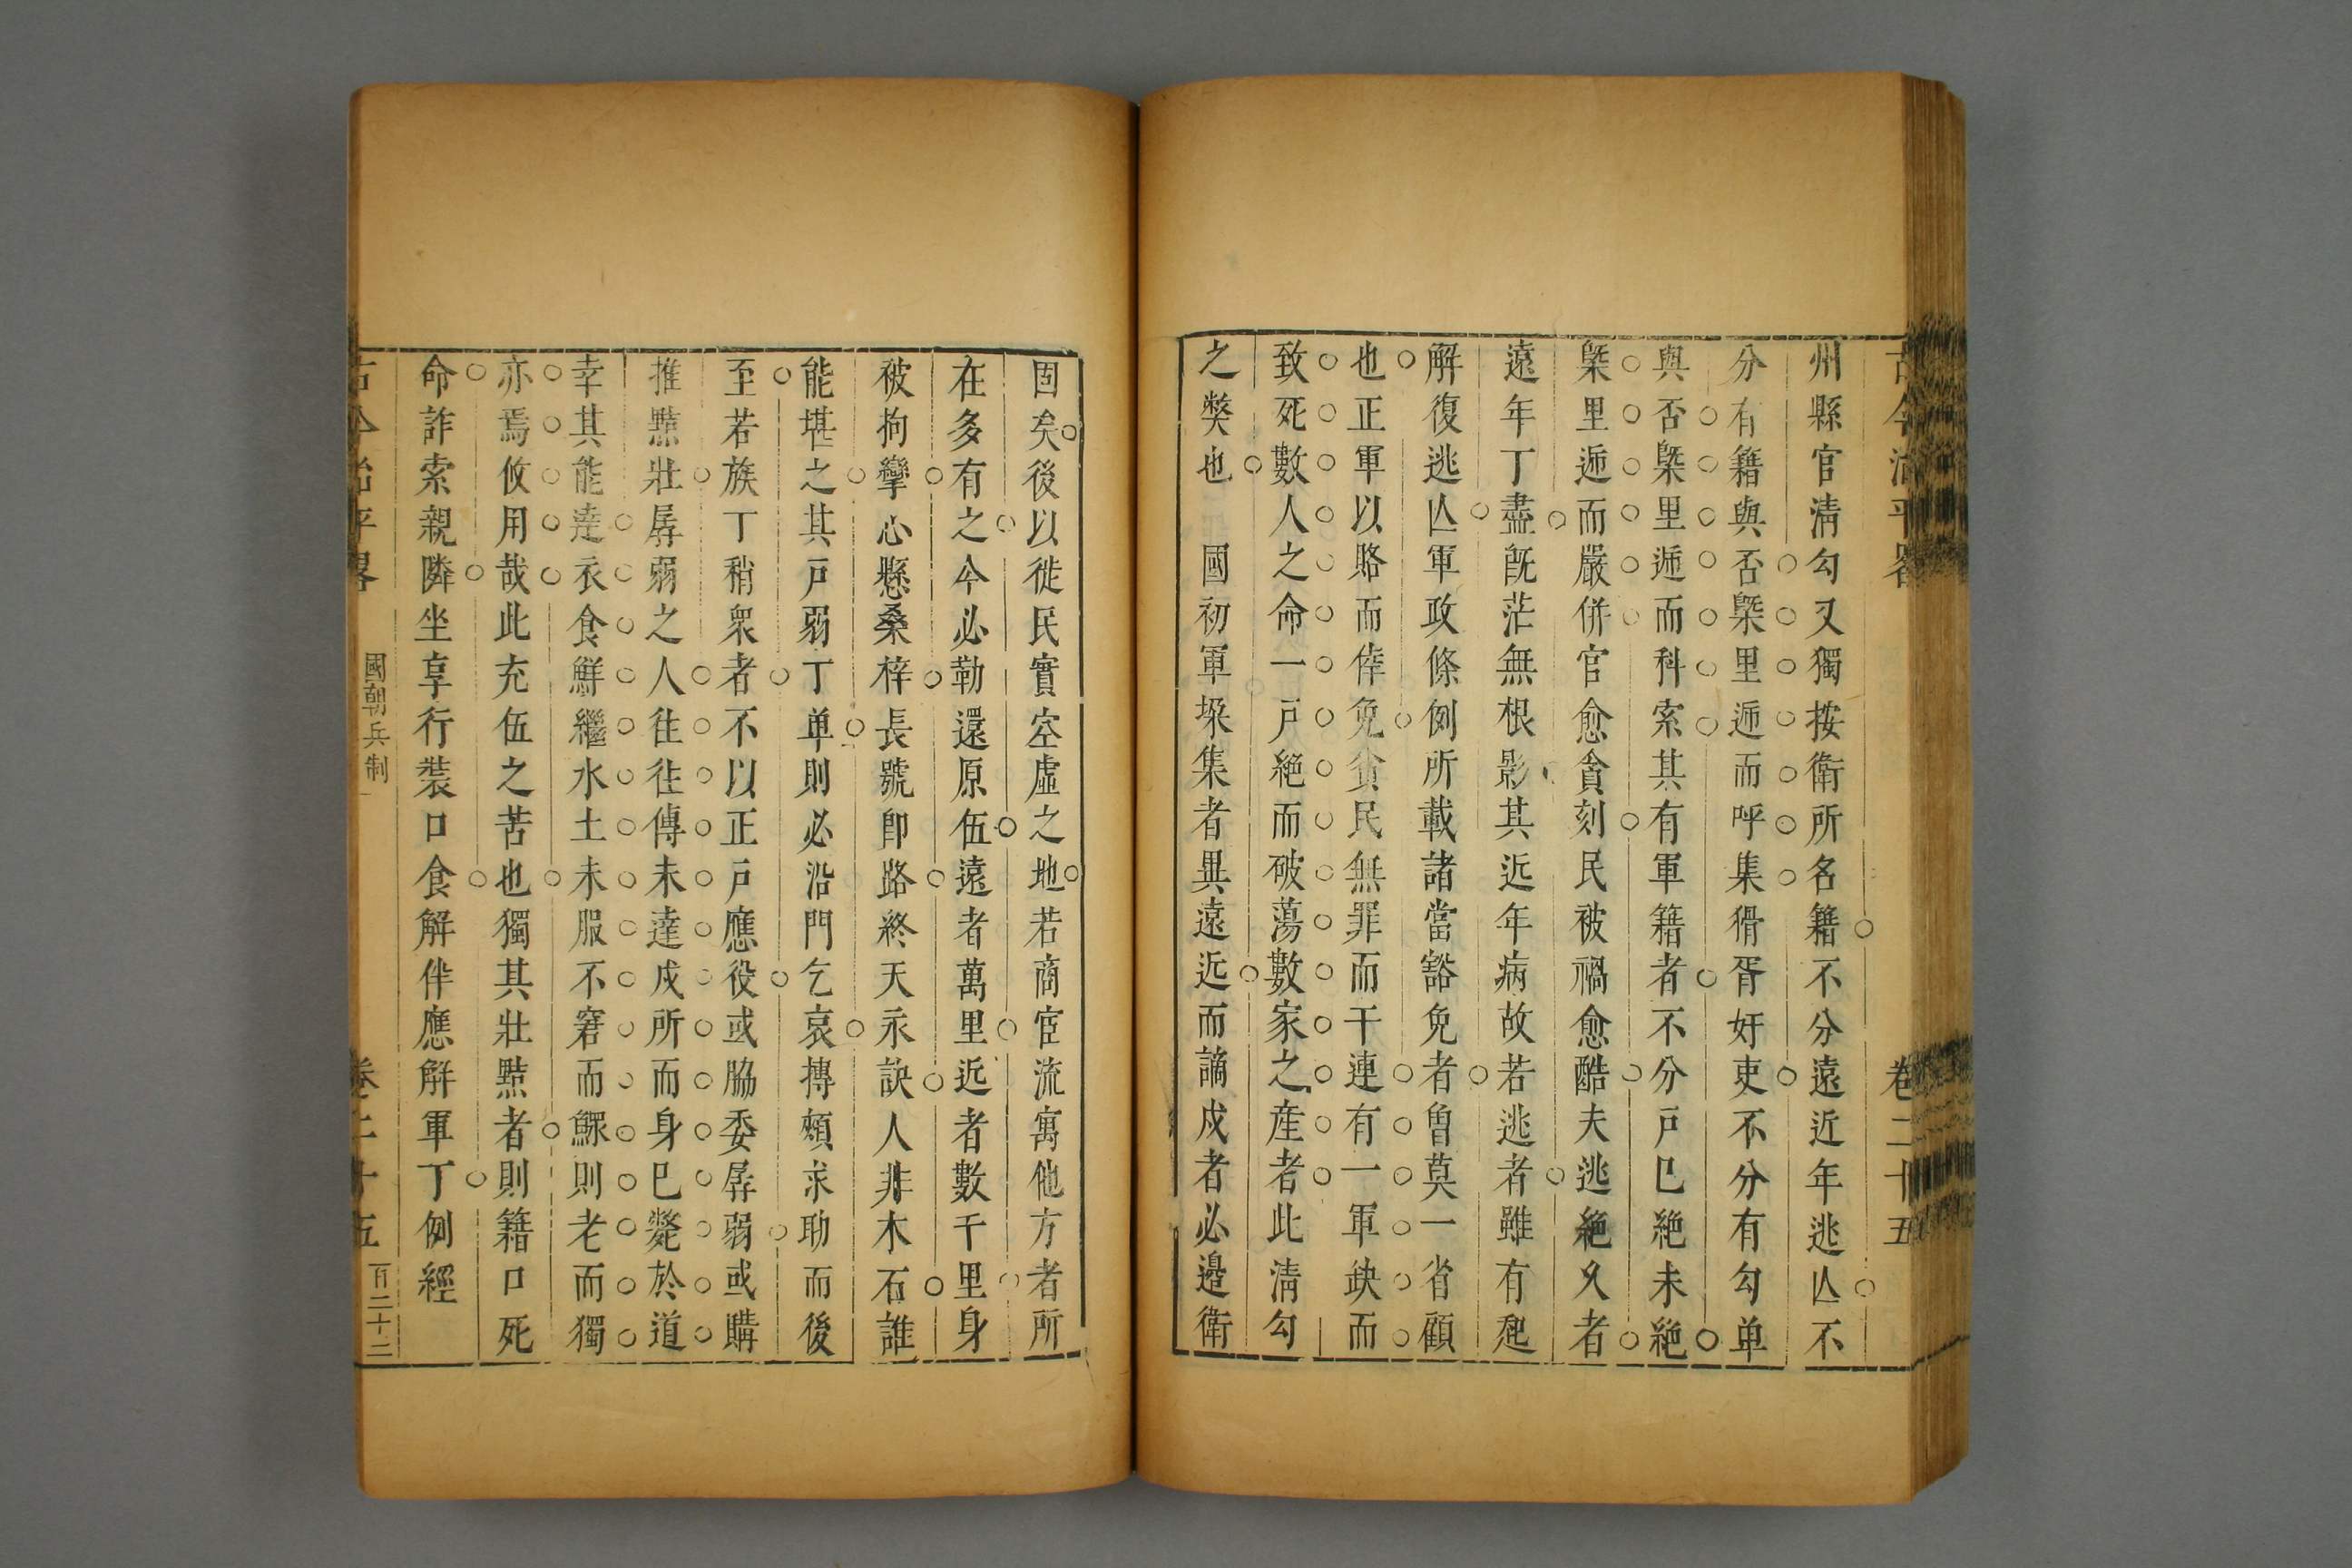 古今治平畧 卷二十五
州縣官清勾又獨按衛所名籍不分遠近年逃亾不
分有籍與否槩里逓而呼集猾胥奸吏不分有勾单
與否槩里逓而科索其有軍籍者不分戸巳絶未絶
槩里逓而嚴併官愈貪刻民被禍愈酷夫逃絶久者
遠年丁盡旣茫無根影其近年病故若逃者雖有𨓏
解復逃亾軍政條例所載諸當豁免者曾莫一省顧
也正軍以賂而倖免貧民無罪而干連有一軍缺而
致死數人之命一戸絶而破蕩數家之産者此清勾
之獘也 國初軍垜集者異遠近而謫戍者必邉衛
固矣後以徙民實空虛之地若商宦流寓他方者所
在多有之今必勒還原伍遠者萬里近者數千里身
被拘攣心懸桑梓長號卽路終天永訣人非木石誰
能堪之其戸弱丁单則必沿門乞哀摶頰求助而後
至若族丁稍衆者不以正戸應役或脇委孱弱或購
推黠壯孱弱之人往徃傳未達戍所而身巳斃於道
幸其能逹衣食鮮繼水土未服不窘而鰥則老而獨
亦焉攸用哉此充伍之苦也獨其壯黠者則籍口死
命詐索親隣坐享行裝口食解伴應解軍丁例經
古今治平畧 國朝兵制 卷二十五 百二十二